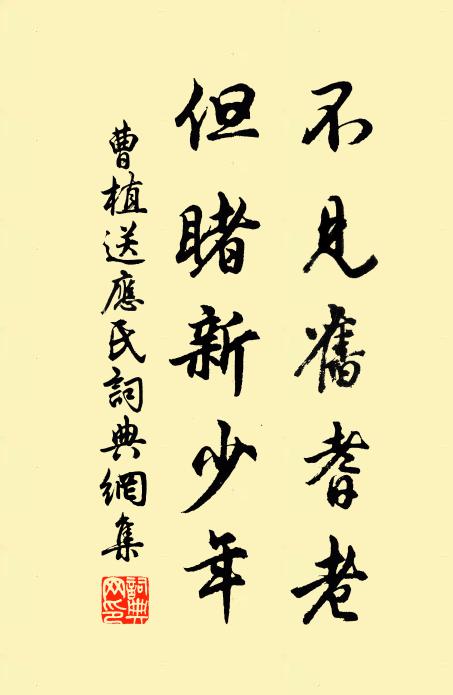 不見舊耆老
但睹新少年
曹植送應氏詞典網集
詞典网印